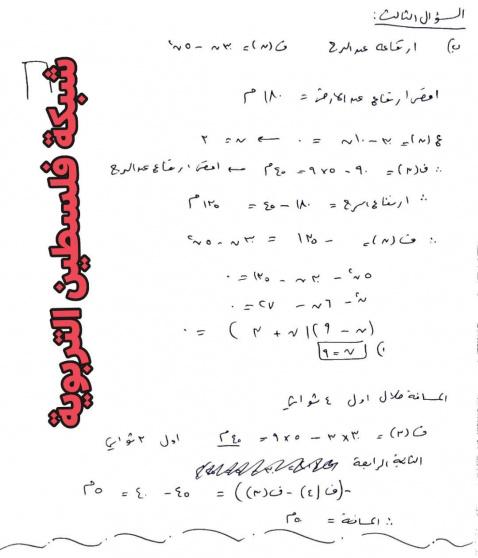 السؤال الثالث:
ب) ارتفاعه عن البرج ف(ن) = ٣٠ن - ٥ن²
أقصى ارتفاع عن الأرض = ١٨٠ م
ع(ن) = ٣٠ - ١٠ن = ٠ ← ن = ٣
∴ ف(٣) = ٩٠ - ٥×٩ = ٤٥ م ← أقصى ارتفاع عن البرج
∴ ارتفاع البرج = ١٨٠ - ٤٥ = ١٣٥ م
∴ ف(ن) = -١٣٥ = ٣٠ن - ٥ن²
٥ن² - ٣٠ن - ١٣٥ = ٠
ن² - ٦ن - ٢٧ = ٠
(ن - ٩)(ن + ٣) = ٠
١) ن = ٩
المسافة خلال أول ٤ ثواني
ف(٣) = ٣٠×٣ - ٥×٩ = ٤٥ م أول ٣ ثواني
الثانية الرابعة
-(ف(٤) - ف(٣)) = ٤٥ - ٤٠ = ٥ م
∴ المسافة = ٥٠ م
شبكة فلسطين التربوية